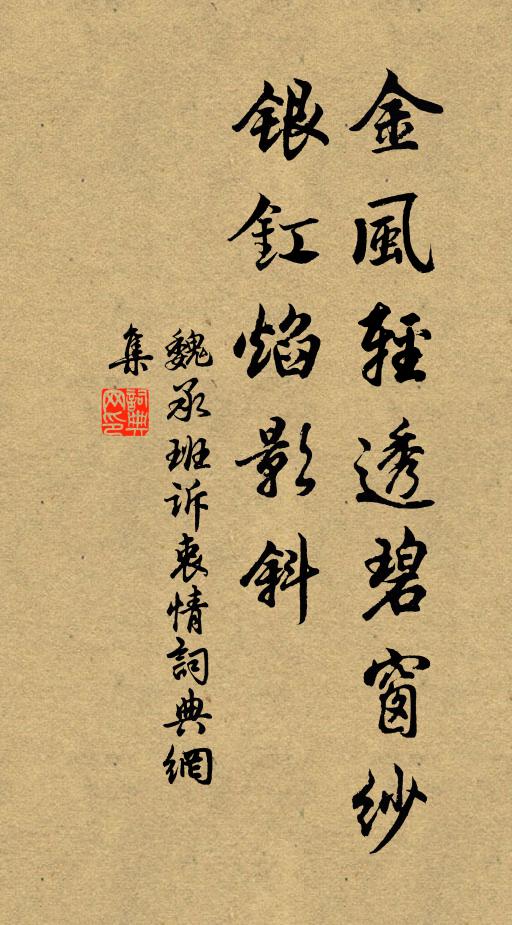 金風輕透碧窗紗
銀釭焰影斜
魏承班诉衷情詞典網
集
詞典網印